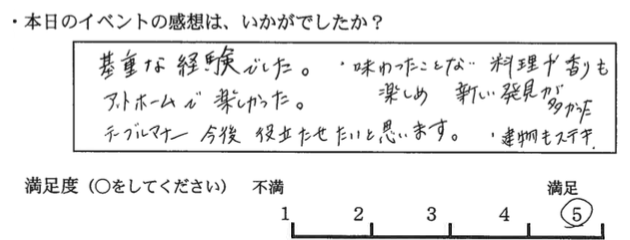 ・本日のイベントの感想は、いかがでしたか？
基重な経験でした。
アットホームで楽しかった。
テーブルマナー 今後 役立たせたいと思います。
・味わったことない 料理や香りも
楽しめ 新しい発見が
多かった
・建物もステキ.
満足度（○をしてください） 不満 満足
1 2 3 4 5